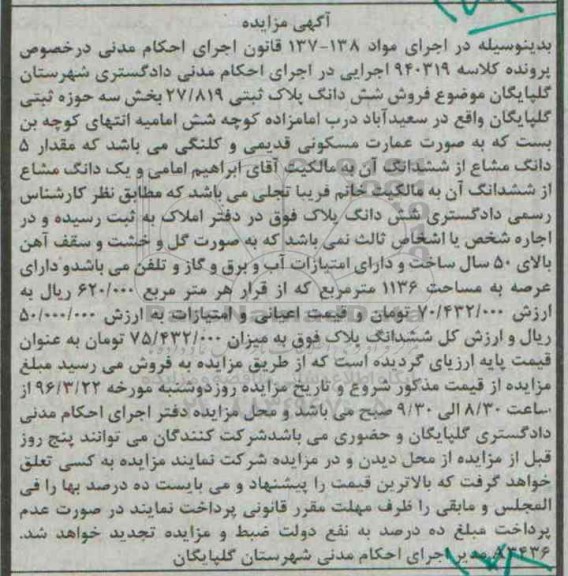 آگهی مزایده
بدینوسیله در اجرای مواد ۱۳۸-۱۳۷ قانون اجرای احکام مدنی درخصوص
پرونده کلاسه ۹۴۰۳۱۹ اجرایی در اجرای احکام مدنی دادگستری شهرستان
گلپایگان موضوع فروش شش دانگ پلاک ثبتی ۲۷/۸۱۹ بخش سه حوزه ثبتی
گلپایگان واقع در سعیدآباد درب امامزاده کوچه شش امامیه انتهای کوچه بن
بست که به صورت عمارت مسکونی قدیمی و کلنگی می باشد که مقدار ۵
دانگ مشاع از ششدانگ آن به مالکیت آقای ابراهیم امامی و یک دانگ مشاع
از ششدانگ آن به مالکیت خانم فریبا تجلی می باشد که مطابق نظر کارشناس
رسمی دادگستری شش دانگ پلاک فوق در دفتر املاک به ثبت رسیده و در
اجاره شخص یا اشخاص ثالث نمی باشد که به صورت گل و خشت و سقف آهن
بالای ۵۰ سال ساخت و دارای امتیازات آب و برق و گاز و تلفن می باشدو دارای
عرصه به مساحت ۱۱۳۶ مترمربع که از قرار هر متر مربع ۶۲۰/۰۰۰ ریال به
ارزش ۷۰/۴۳۲/۰۰۰ تومان و قیمت اعیانی و امتیازات به ارزش ۵۰/۰۰۰/۰۰۰
ریال و ارزش کل ششدانگ پلاک فوق به میزان ۷۵/۴۳۲/۰۰۰ تومان به عنوان
قیمت پایه ارزیابی گردیده است که از طریق مزایده به فروش می رسید مبلغ
مزایده از قیمت مذکور شروع و تاریخ مزایده روزدوشنبه مورخه ۹۶/۳/۲۲ از
ساعت ۸/۳۰ الی ۹/۳۰ صبح می باشد و محل مزایده دفتر اجرای احکام مدنی
دادگستری گلپایگان و حضوری می باشدشرکت کنندگان می توانند پنج روز
قبل از مزایده از محل دیدن و در مزایده شرکت نمایند مزایده به کسی تعلق
خواهد گرفت که بالاترین قیمت را پیشنهاد و می بایست ده درصد بها را فی
المجلس و مابقی را ظرف مهلت مقرر قانونی پرداخت نمایند در صورت عدم
پرداخت مبلغ ده درصد به نفع دولت ضبط و مزایده تجدید خواهد شد.
مدیر اجرای احکام مدنی شهرستان گلپایگان